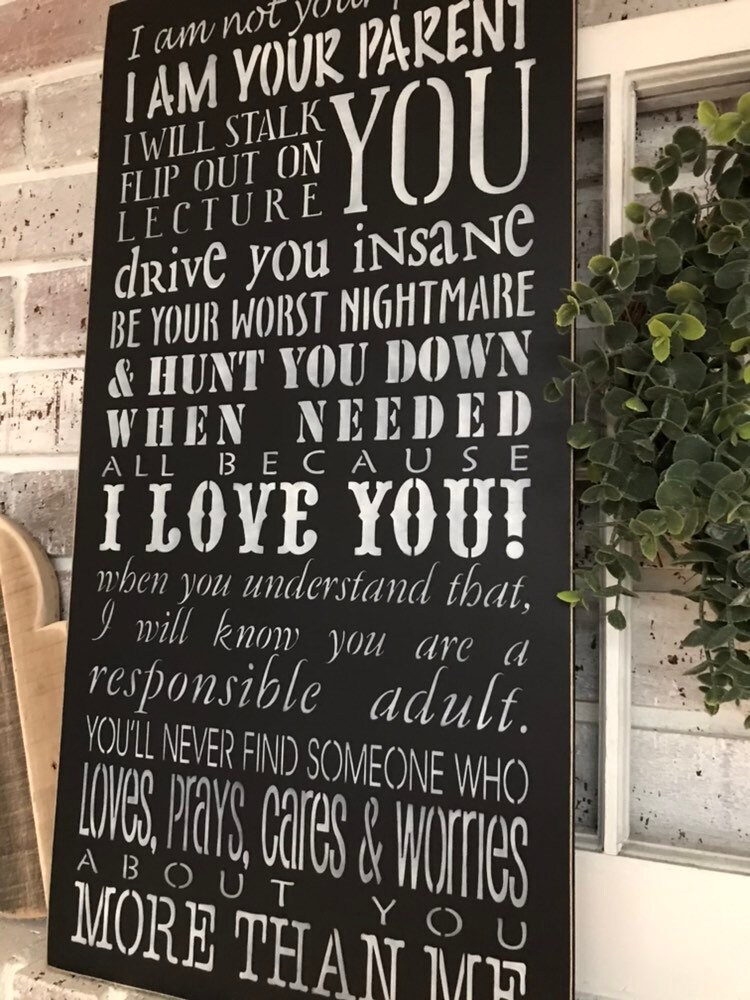 I am not your
I AM YOUR PARENT
I WILL STALK
FLIP OUT ON
LECTURE
YOU
drive you insane
BE YOUR WORST NIGHTMARE
& HUNT YOU DOWN
WHEN NEEDED
ALL BECAUSE
I LOVE YOU!
when you understand that,
I will know you are a
responsible adult.
YOU'LL NEVER FIND SOMEONE WHO
Loves, Prays, Cares & Worries
ABOUT YOU
MORE THAN ME